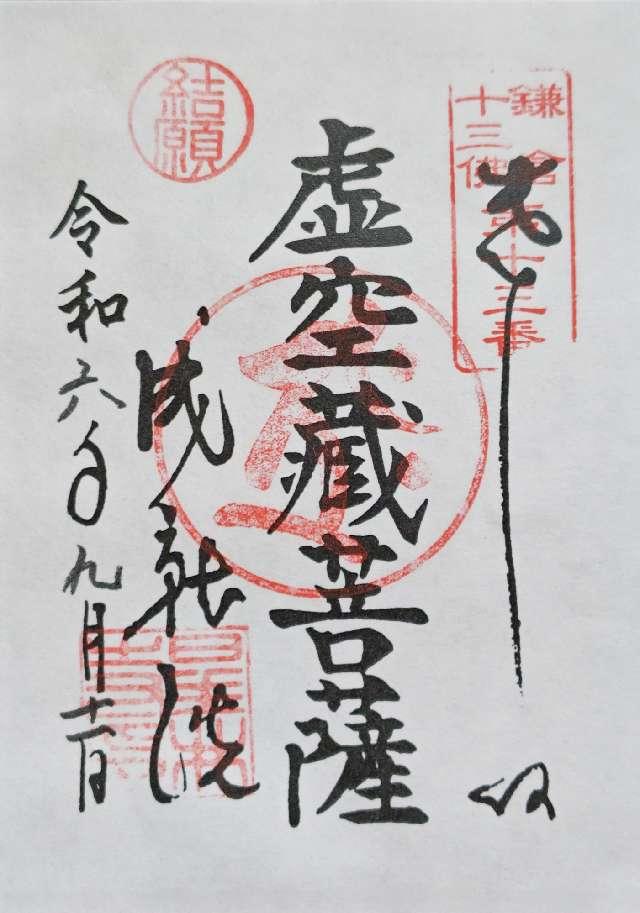 鎌倉
十三佛第十三番
奉拝
虚空蔵菩薩
結願
成就院
令和六年九月十一日